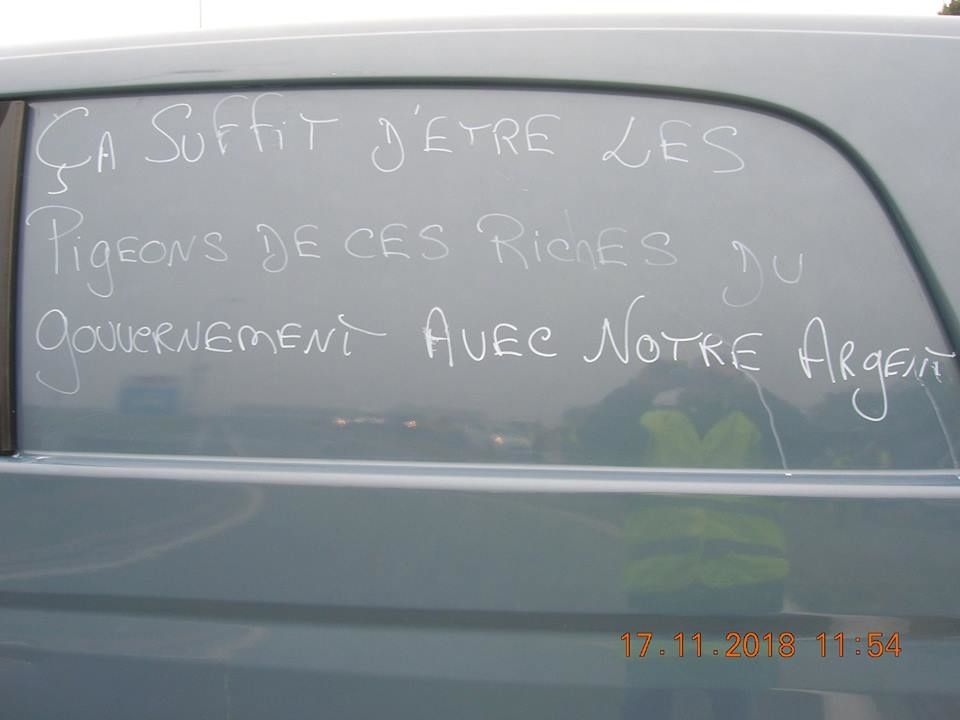 ÇA SUFFIT D'ETRE LES
PigEONS DE CES RichES DU
gouvERNEMENT AVEC NOTRE ARgENT
17.11.2018 11:54